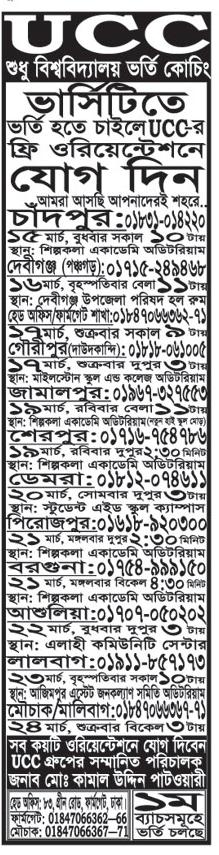 UCC
শুধু বিশ্ববিদ্যালয় ভর্তি কোচিং
ভার্সিটিতে
ভর্তি হতে চাইলে UCC-র
ফ্রি ওরিয়েন্টেশনে
যোগ দিন
আমরা আসছি আপনাদেরই শহরে..
চাঁদপুর:০১৮৩১-০১৪২২০
১৫ মার্চ, বুধবার সকাল ১০টায়
স্থান: শিল্পকলা একাডেমি অডিটরিয়াম
দেবীগঞ্জ (পঞ্চগড়):০১৭১৫-২৪৯৪৬৮
১৬ মার্চ, বৃহস্পতিবার বেলা ১১টায়
স্থান: দেবীগঞ্জ উপজেলা পরিষদ হল রুম
হেড অফিস/ফার্মগেট শাখা:০১৮৪৭০৬৬৩৬২-৭১
১৭ মার্চ, শুক্রবার সকাল ৯টায়
গৌরীপুর(দাউদকান্দি): ০১৮১৮-০৬১০০৫
১৭ মার্চ, শুক্রবার দুপুর ৩টায়
স্থান: মাইলস্টোন স্কুল এন্ড কলেজ অডিটরিয়াম
জামালপুর: ০১৯৬৭-৩২৭৫৫৩
১৯ মার্চ, রবিবার বেলা ১১টায়
স্থান: শিল্পকলা একাডেমি অডিটরিয়াম(নতুন হাই স্কুল মোড়)
শেরপুর:০১৭১৬-৭৫৪৭৮৬
১৯ মার্চ, রবিবার দুপুর২:৩০ মিনিট
স্থান: শিল্পকলা একাডেমি অডিটরিয়াম
ডেমরা: ০১৮১২-০৭৪৬১১
২০ মার্চ, সোমবার দুপুর ৩টায়
স্থান: স্টুডেন্ট এইড স্কুল ক্যাম্পাস
পিরোজপুর:০১৬১৮-৯২০৩০০
২১ মার্চ, মঙ্গলবার দুপুর২:৩০ মিনিট
স্থান: শিল্পকলা একাডেমি অডিটরিয়াম
বরগুনা:০১৭৫৪-৯৯৯১৫০
২১ মার্চ, মঙ্গলবার বিকেল ৪:৩০ মিনিট
স্থান: শিল্পকলা একাডেমি অডিটরিয়াম
আশুলিয়া:০১৭০৭-০৫০২০২
২২ মার্চ, বুধবার দুপুর ৩টায়
স্থান: এলাহী কমিউনিটি সেন্টার
লালবাগ:০১৯১১-৮৫৭১৭৩
২৩ মার্চ, বৃহস্পতিবার সকাল ১০টায়
স্থান: আজিমপুর এস্টেট জনকল্যাণ সমিতি অডিটরিয়াম
মৌচাক/মালিবাগ:০১৮৪৭০৬৬৩৬৭-৭১
২৪ মার্চ, শুক্রবার বিকেল ৩টায়
সব কয়টি ওরিয়েন্টেশনে যোগ দিবেন
UCC গ্রুপের সম্মানিত পরিচালক
জনাব মোঃ কামাল উদ্দিন পাটওয়ারী
হেড অফিস: ৮৩, গ্রীন রোড, ফার্মগেট, ঢাকা।
ফার্মগেট: 01847066362—66
মৌচাক: 01847066367—71
১ম
ব্যাচসমূহে
ভর্তি চলছে